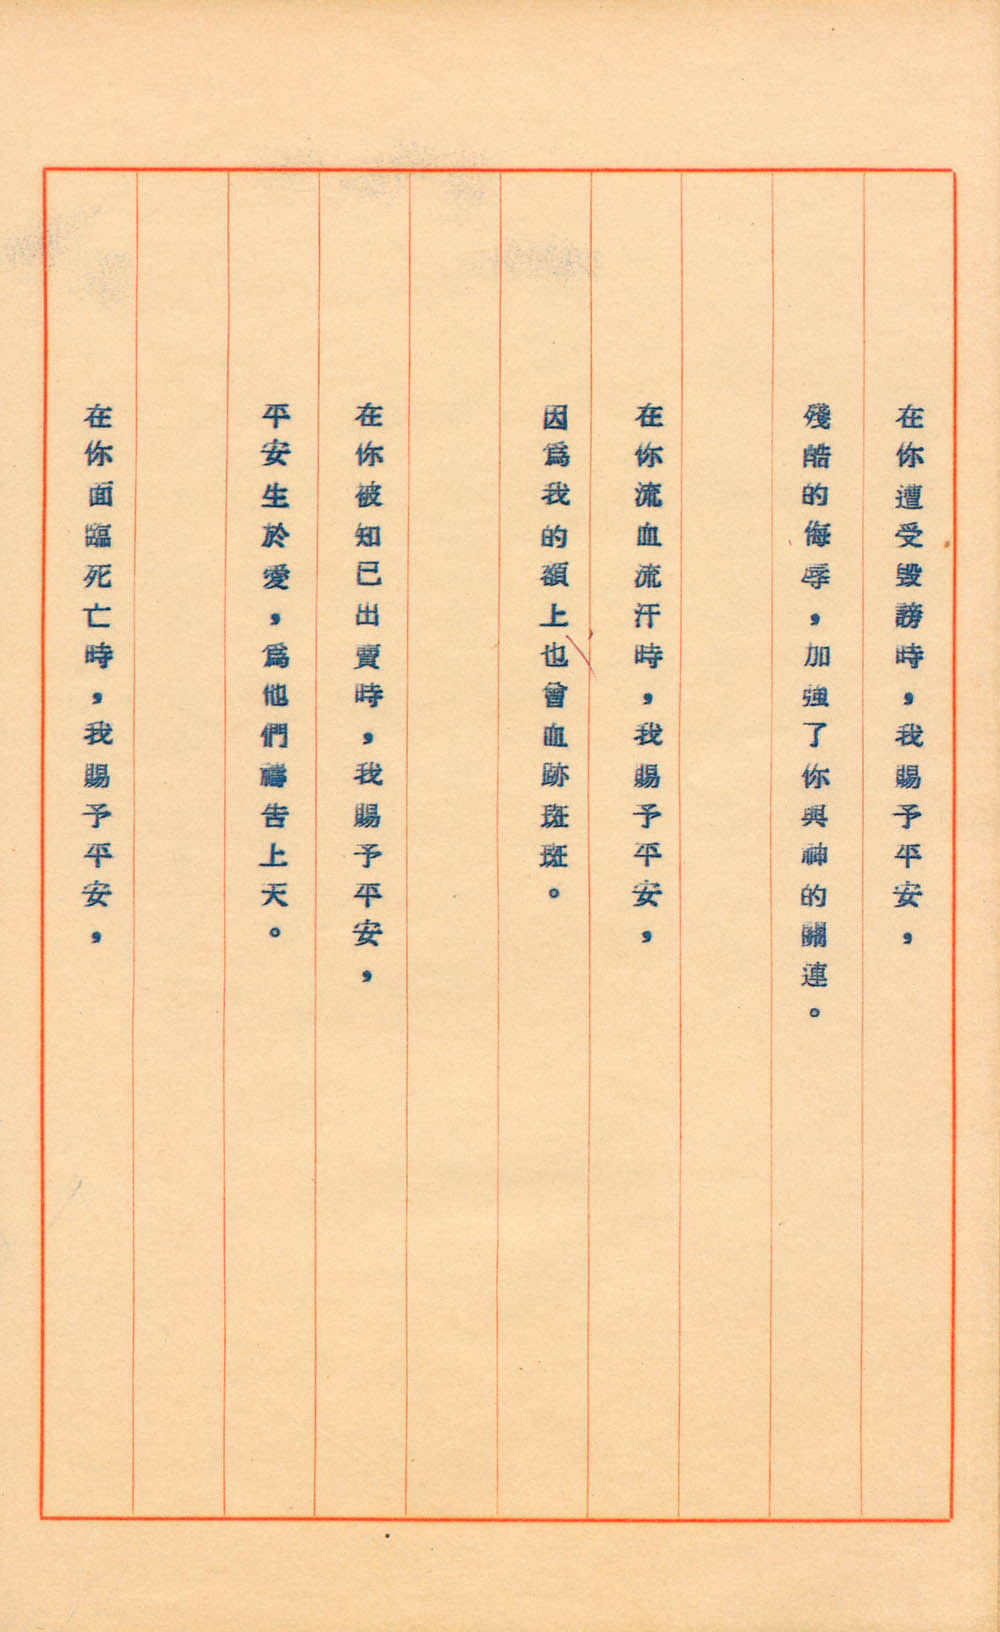 在你遭受毀謗時，我賜予平安，
殘酷的侮辱，加強了你與神的關連。
在你流血流汗時，我賜予平安，
因爲我的額上也曾血跡斑斑。
在你被知已出賣時，我賜予平安，
平安生於愛，爲他們禱告上天。
在你面臨死亡時，我賜予平安，